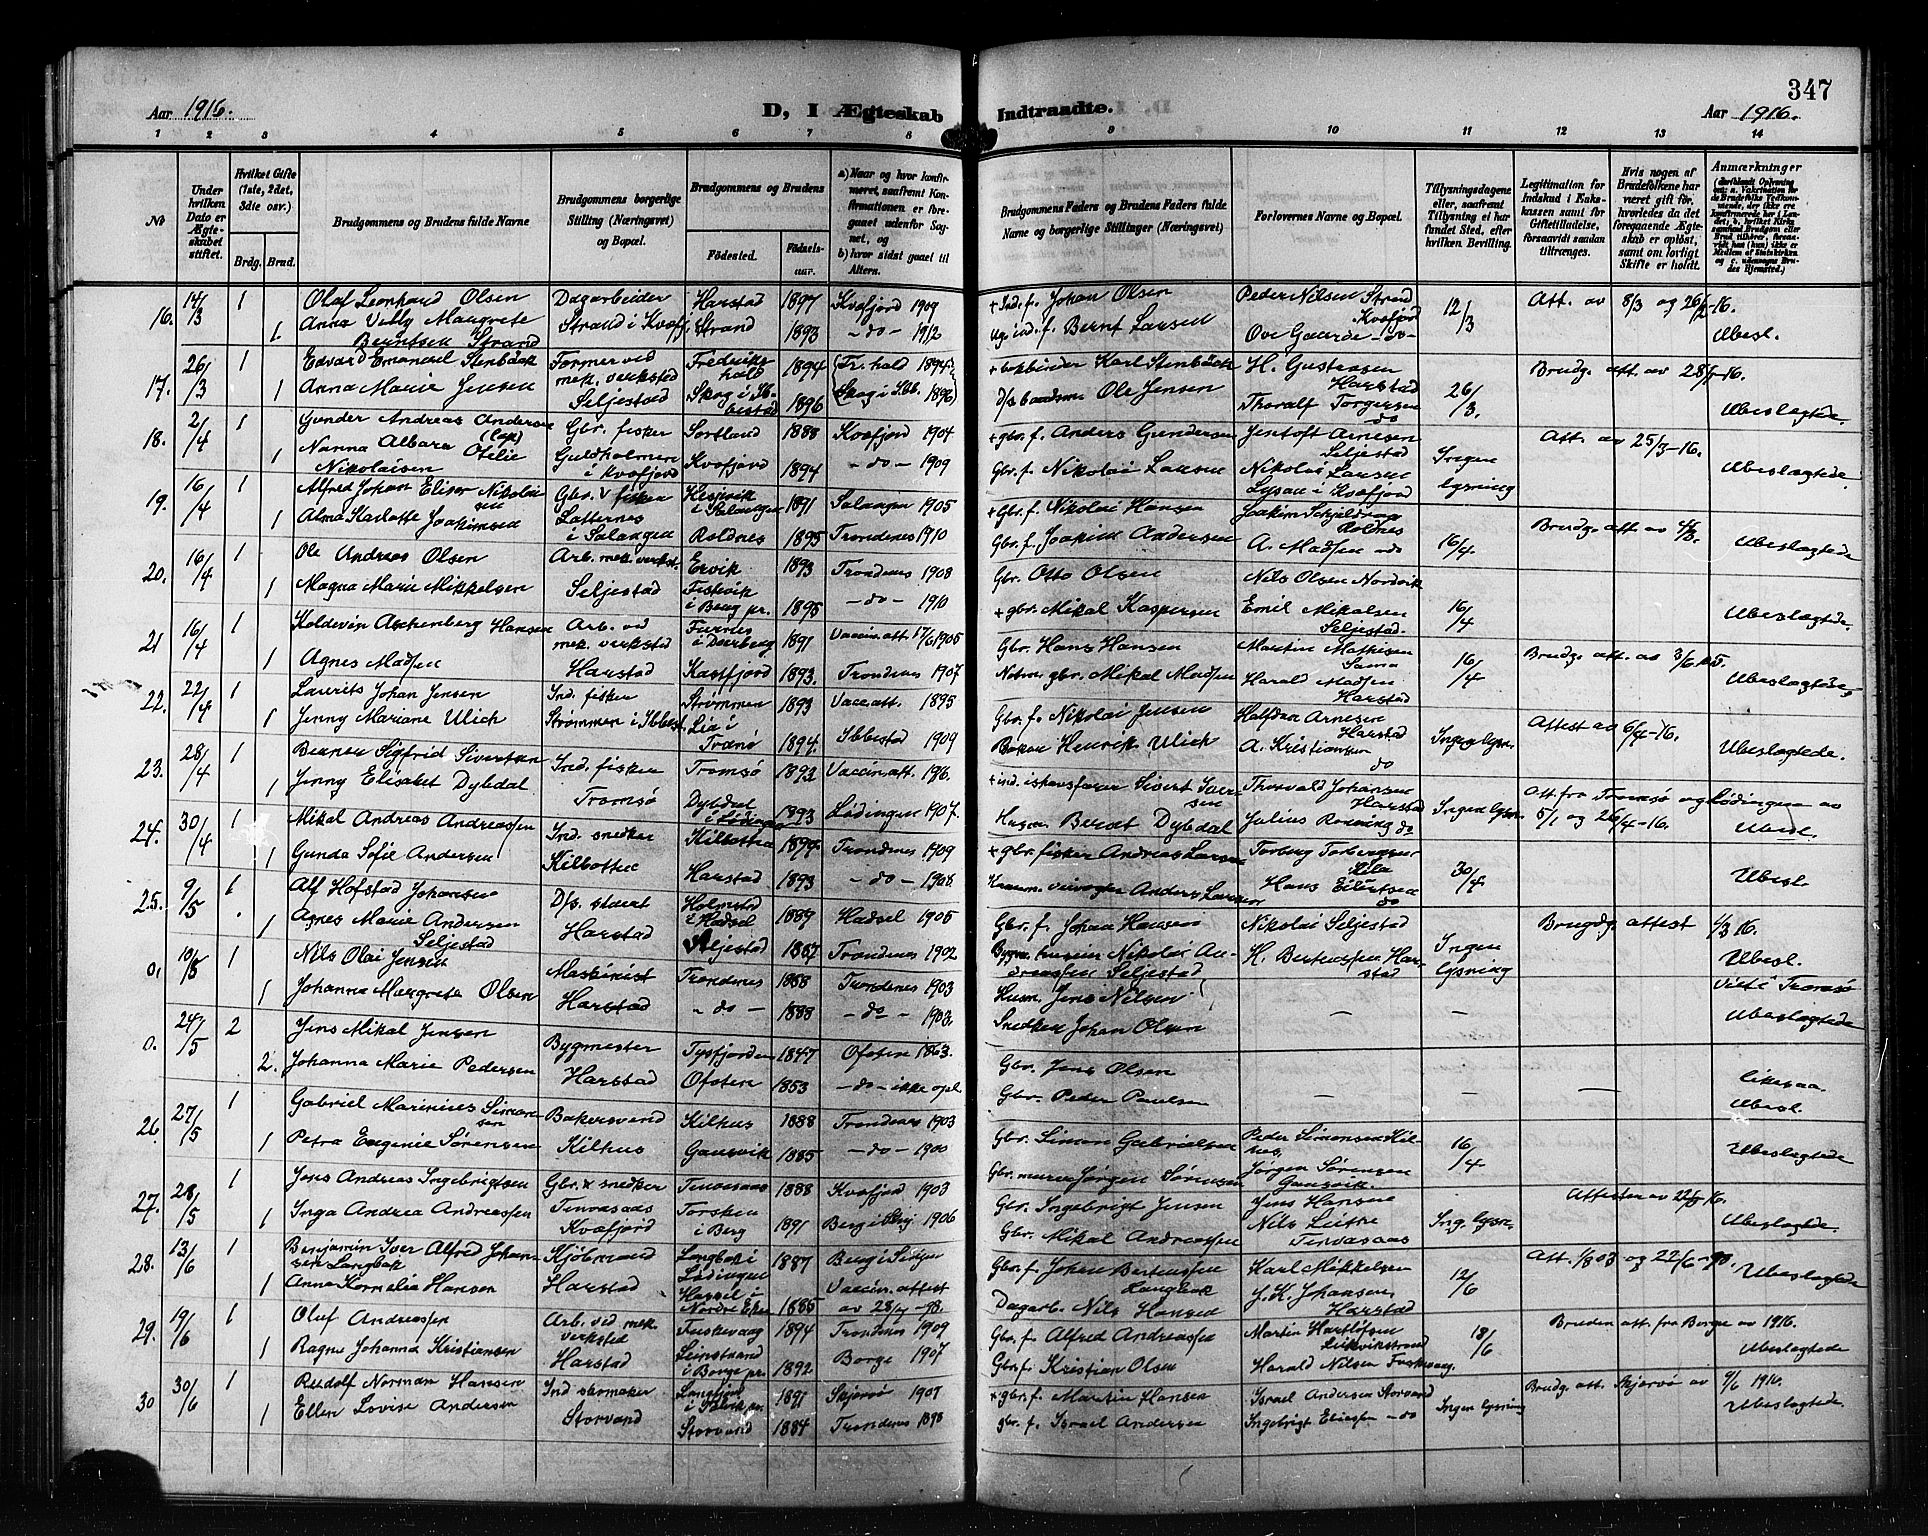 347
Aar 1916.
D, I Ægteskab Indtraadte.
Aar 1916.
1 2 3 4 5 6 7 8 9 10 11 12 13 14
No
Under hvilken Dato er Ægteskabet stiftet.
Hvilket Gifte (1ste, 2det, 3die osv.)
Brdg. Brud.
Brudgommens og Brudens fulde Navne
Brudgommens borgerlige Stilling (Næringsvei) og Bopæl.
Brudgommens og Brudens
Fødested. Fødselsaar.
a) Naar og hvor konfirmeret, saafremt Konfirmationen er foregaaet udenfor Sognet, og b) hvor sidst gaaet til Alters.
Brudgommens Faders og Brudens Faders fulde Navne og borgerlige Stillinger (Næringsvei)
Forlovernes Navne og Bopæl.
Tillysningsdagene eller, saafremt Tillysning ei har fundet Sted, efter hvilken Bevilling.
Legitimation for Indskud i Enkekassen samt for Giftetilladelse, forsaavidt saadan tiltrænges.
Hvis nogen af Brudefolkene har været gift før, hvorledes da det foregaaende Ægteskab er opløst, samt om lovligt Skifte er holdt.
Anmærkninger
16. 14/3 1 Olaf Leonhard Olsen Dagarbeider Harstad 1897 Kvæfjord 1909 + Ind. f. Johan Olsen Peder Nilsen Strand Kvæfjord 12/3 Att. av 8/3 og 26/2-16.
1. Anna Velly Margrete Berntsen Strand Strand i Kvæfj. Strand 1893 - do - 1912 Bernt Larsen Ove Gaarde - do - Ubesl.
17. 26/3 1 Edvard Emanuel Stenbäck Former ved mek. verksted Fredrikshald 1894 (Fr. hald 1894) + bokbinder Karl Stenbäck H. Gustavsen Harstad 26/3. Brudg. att. av
1 Anna Marie Jensen Seljestad Skog i Ibbestad 1896 (Skog i Ibb. 1896) Ole Jensen Thoralf Torgersen do Ubeslagtede.
18. 2/4 1 Gunder Andreas Andersen (Lap) Gbr. fisker Sortland 1888 Kvæfjord 1904 + gbr. f. Anders Gundersen Jentoft Arnesen Seljestad Ingen lysning Att. av 25/3-16.
1 Nanna Albara Otelie Nikolaisen Guldholmen i Kvæfjord Kvæfjord 1894 - do - 1909 Gbr. f. Nikolai Larsen Nikolai Larsen i Kvæfjord Ubeslagtede
19. 16/4 1 Alfred Johan Eliser Nikolaisen Gbr. fisker i Salangen 1891 Salangen 1905 + Gbr. f. Nikolai Hansen Joakim Roldnes 16/4 Brudg. att. av
1 Alma Karlotte Joakimsen i Salangen Roldnes 1895 Trondenes 1910 Gbr. f. Joakim Andersen A. Madsen do Ubeslagtede
20. 16/4 1 Ole Andreas Olsen Arb. mek. verkst. Ervik 1893 Trondenes 1908 Gbr. Otto Olsen Nils Olsen Nordvik 16/4
1 Magna Marie Mikkelsen Seljestad i Berg pr. 1895 - do - 1910 + gbr. Mikal Kaspersen Emil Mikalsen Seljestad. Ubeslagtede.
21 16/4 1 Koldevin Aschenberg Hansen Arb. ved mek. verksted i Dverberg 1891 Vaccin. att. 17/6 1905 Gbr. Hans Hansen Martin Mathisen Sama 16/4 Brudg. att. av
1 Agnes Madsen Harstad Kasfjord 1893. Trondenes 1907 gbr. Mikal Madsen Harald Madsen Harstad Ubeslagtede
22. 22/4 1 Laurits Johan Jensen Ind. fisker Strømmen 1893 Vacc. att. 1895 Gbr. f. Nikolai Jensen Halfdan Arnesen Harstad Ingen lysn. Attest av 6/4-16.
1 Jenny Mariane Ulich Strømmen i Ibbest. Lia i Tranø 1894. Ibbestad 1909 Henrik Ulich A. Kristiansen do Ubeslagtede.
23. 28/4 1 Berner Sigfrid Sivertsen Ind. fisker Tromsø 1892 Vaccin. att. + ind. ishavsfarer Sivert Thorvald Johansen Harstad Ingen lysn. Att. fra Tromsø og Lødingen av 5/1 og 26/4-16.
1 Jenny Elisabet Dybdal Tromsø Dybdal i Lødingen 1893 Lødingen 1907. Berdt Dybdal Julius Ronning do Ubesl.
24. 30/4 1 Mikal Andreas Andreassen Ind. snedker Kilbotten 1894 Trondenes 1909 + gbr. fisker Andreas Larsen Torberg Torbergsen Kila 30/4
1 Gunda Sofie Andersen Kilbotten Harstad 1893 - do - 1908. Anders Larsen Hans Eilertsen do Ubesl.
25. 9/5 1 Alf Hofstad Johansen D/s. stuert Holmstad i Hadsel 1884 Hadsel 1905 Gbr. f. Johan Hansen Nikolai Seljestad Ingen lysning Brugdg. attest 4/3 16.
1 Agnes Marie Andersen Seljestad Harstad Seljestad 1887 Trondenes 1902 Nikolai Andreassen Seljestad H. Berteussen Harstad Ubesl.
0. 10/5 1 Nils Olai Jensen Maskinist Trondenes 1888 Trondenes 1903 Husm. Jens Nilsen - - Viet i Tromsø
1 Johanna Margrete Olsen Harstad - do - 1888 - do - 1903. Snedker Johan Olsen Ubeslagtede
0. 24/5 2 Jens Mikal Jensen Bygmester Tysfjorden 1847 Ofoten 1863. Gbr. Jens Olsen - - - likesaa.
2. Johanna Marie Pedersen Harstad Ofoten 1853 - do - ikke opl. Gbr. Peder Paulsen Ubesl.
26. 27/5 1 Gabriel Marinius Simonsen Bakersvend Kilhus 1888 Trondenes 1903 Gbr. Simon Gabrielsen Peder Simonsen 16/4
1 Petra Eugenie Sørensen Kilhus Gausvik 1885 - do - 1900 Gbr. murer Jørgen Sørensen Jørgen Sørensen Gausvik. Ubeslagtede
27. 28/5 1 Jens Andreas Ingebrigtsen Gbr. & snedker Tennesaas 1888 Kvæfjord 1903 Gbr. Ingebrigt Jensen Jens Hansen Ing. lysn. Attester av 22/5-16.
1 Inga Andrea Andreassen Kvæfjord Torsken i Berg 1891 Berg i 1906 Gbr. Mikal Andreassen Nils Ubeslagtede.
28. 13/6 1 Benjamin Iver Alfred Johansen Langbak Kjøbmand Langbak i Lødingen 1887 Gbr. f. Johan Berteussen Langbak Karl Mikkelsen 12/6 Att. 1/8 03 og 22/6-98.
1 Anna Kornelia Hansen Harstad i Nordre Eker 1885 Vaccin. attest av Dagarb. Nils Hansen J. K. Johansen Harstad Ubeslagtede
29. 19/6 1 Oluf Andreassen Arb. ved mek. verksted Fuskevaag 1894 Trondenes 1909 Gbr. f. Alfred Andreassen Martin 18/6 Bruden att. fra Borge av 1916.
1 Ragna Johanna Kristiansen Harstad i Borge pr. 1892 Borge 1907 Gbr. f. Kristian Olsen Harald Nilsen Ubeslagtede
30 30/6 1 Rudolf Norman Hansen Ind skomaker 1891 Skjervø 1907 + gbr. f. Martin Hansen Israel Andersen Storvand Ingen lysning Brudg. att. Skjervø av 9/6 1916.
1 Ellen Lovise Andersen Storvand Storvand 1884 Trondenes 1898 gbr. f. Israel Andersen Ingebrigt Eliassen - do Ubeslagtede.